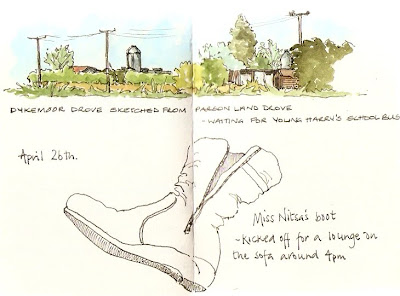 DYKEMOOR DROVE SKETCHED FROM PARSON LAND DROVE
- WAITING FOR YOUNG HARRY'S SCHOOL BUS
April 26th.
Miss Nitsa's boot
- Kicked off for a lounge on
the sofa around 4pm